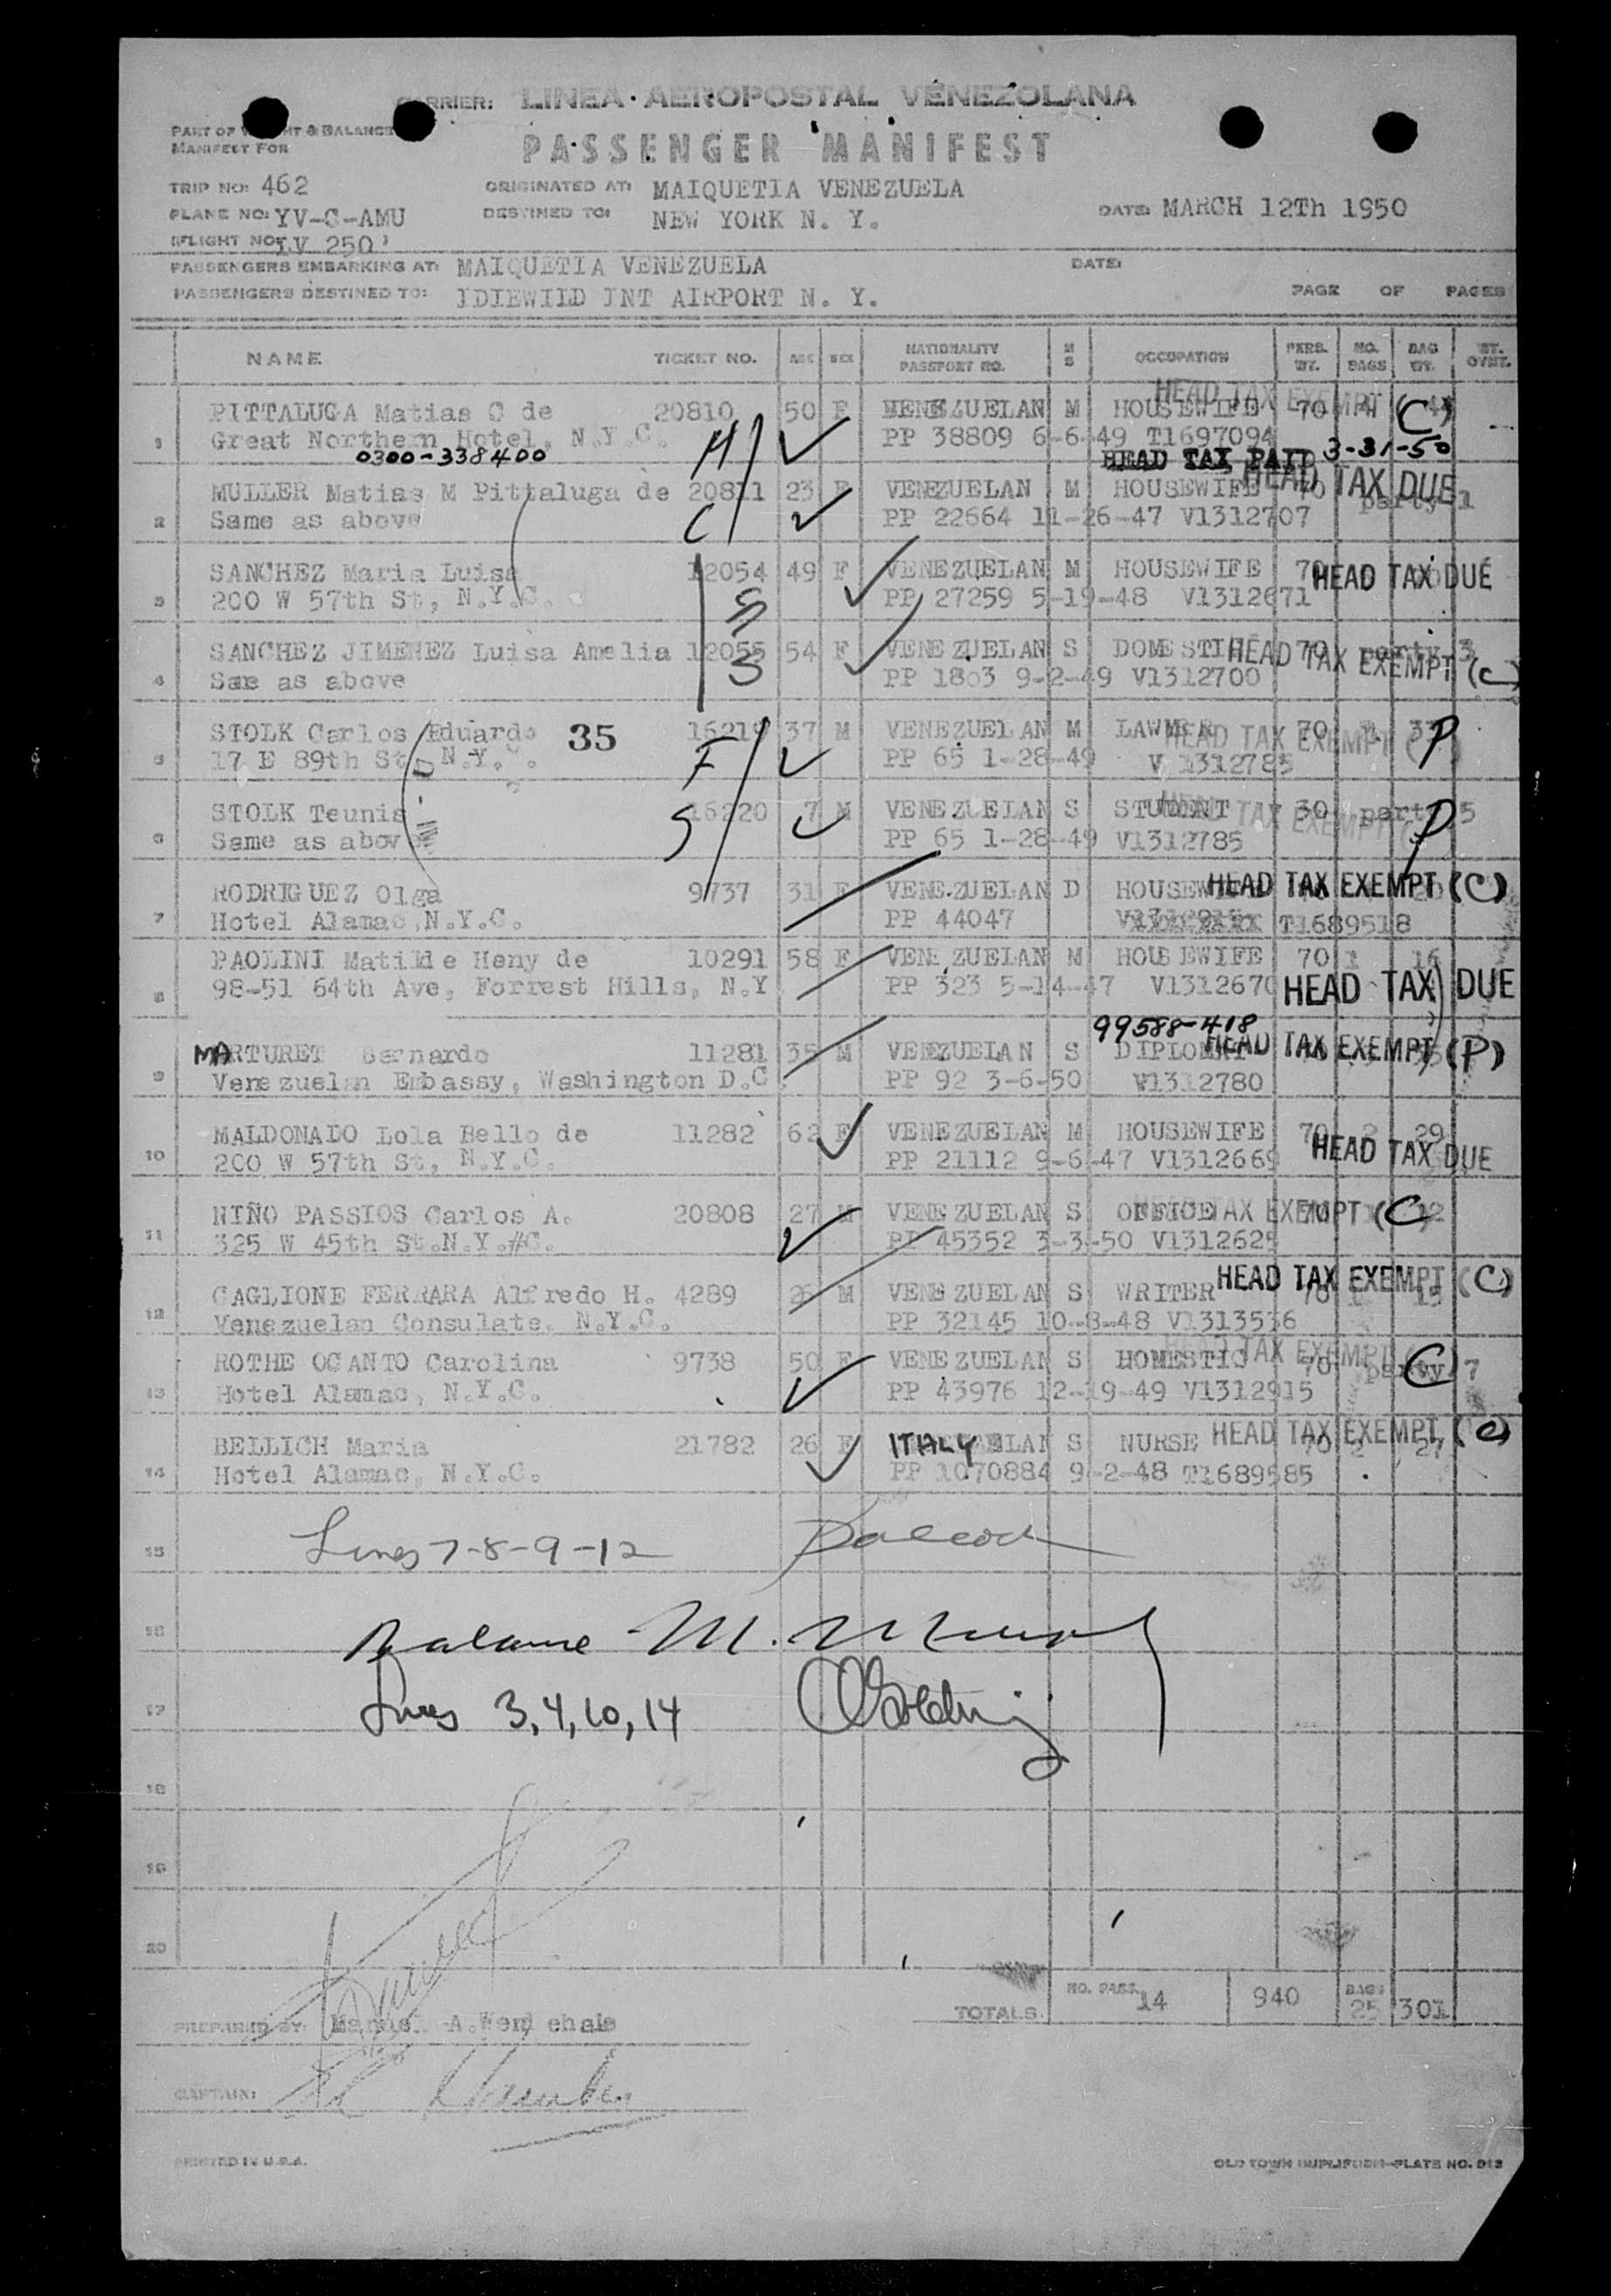 CARRIER: LINEA AEROPOSTAL VENEZOLANA
PART OF & BALANCE
MANIFEST FOR
PASSENGER MANIFEST
TRIP NO: 462
ORIGINATED AT: MAIQUETIA VENEZUELA
PLANE NO: YV-C-AMU
DESTINED TO: NEW YORK N. Y.
DATE: MARCH 12Th 1950
(FLIGHT NO: LV 250)
PASSENGERS EMBARKING AT: MAIQUETIA VENEZUELA DATE:
PASSENGERS DESTINED TO: IDIEWILD INT AIRPORT N. Y. PAGE OF PAGES
NAME TICKET NO. AGE SEX NATIONALITY PASSPORT NO. M S OCCUPATION PERS. WT. NO. BAGS BAG WT.
1 PITTALUGA Matias C de 20810 50 F VENEZUELAN M HOUSEWIFE 70 4 HEAD TAX EXEMPT (C)
Great Northern Hotel, N.Y.C. PP 38809 6-6-49 T1697094
0300-338400 H HEAD TAX PAID 3-31-50
2 MULLER Matias M Pittaluga de 20811 23 F VENEZUELAN M HOUSEWIFE 70 party 1 HEAD TAX DUE
Same as above C PP 22664 11-26-47 V1312707
3 SANCHEZ Maria Luisa 12054 49 F VENEZUELAN M HOUSEWIFE 70 HEAD TAX DUE
200 W 57th St, N.Y.C. PP 27259 5-19-48 V1312671
4 SANCHEZ JIMENEZ Luisa Amelia 12055 54 F VENEZUELAN S DOMESTIC 70 party 3 HEAD TAX EXEMPT (C)
Sae as above PP 1803 9-2-49 V1312700
5 STOLK Carlos Eduardo 35 16219 37 M VENEZUELAN M LAWYER 70 HEAD TAX EXEMPT P
17 E 89th St, N.Y.C. F PP 65 1-28-49 V 1312785
6 STOLK Teunis 16220 7 M VENEZUELAN S STUDENT 30 party 5 HEAD TAX EXEMPT P
Same as above S PP 65 1-28-49 V1312785
7 RODRIGUEZ Olga 9737 31 F VENEZUELAN D HOUSEWIFE HEAD TAX EXEMPT (C)
Hotel Alamac, N.Y.C. PP 44047 T1689518
8 PAOLINI Matilde Heny de 10291 58 F VENEZUELAN M HOUSEWIFE 70 1 16
98-51 64th Ave, Forrest Hills, N.Y PP 323 5-14-47 V1312670 HEAD TAX DUE
99588-418
9 MARTURET Bernardo 11281 35 M VENEZUELAN S DIPLOMAT HEAD TAX EXEMPT (P)
Venezuelan Embassy, Washington D.C. PP 92 3-6-50 V1312780
10 MALDONADO Lola Bello de 11282 62 F VENEZUELAN M HOUSEWIFE 70 2 29
200 W 57th St, N.Y.C. PP 21112 9-6-47 V1312669 HEAD TAX DUE
11 NIÑO PASSIOS Carlos A. 20808 27 M VENEZUELAN S OFFICE 70 12 HEAD TAX EXEMPT (C)
325 W 45th St.N.Y.#C. PP 45352 3-3-50 V1312625
12 CAGLIONE FERRARA Alfredo H. 4289 26 M VENEZUELAN S WRITER 70 HEAD TAX EXEMPT (C)
Venezuelan Consulate, N.Y.C. PP 32145 10-8-48 V1313536
13 ROTHE OCANTO Carolina 9738 50 F VENEZUELAN S DOMESTIC 70 party 7 HEAD TAX EXEMPT C
Hotel Alamac, N.Y.C. PP 43976 12-19-49 V1312915
14 BELLICH Maria 21782 26 F ITALY S NURSE 70 2 27 HEAD TAX EXEMPT (C)
Hotel Alamac, N.Y.C. PP 1070884 9-2-48 T1689585
15 Lines 7-8-9-12
16 Balance M.
17 Lines 3,4,10,14
18
19
20
TOTALS. NO. PASS. 14 940 BAGS 25 301
PREPARED BY:
CAPTAIN:
PRINTED IN U.S.A. OLD TOWN DUPLIFORM-PLATE NO. 913